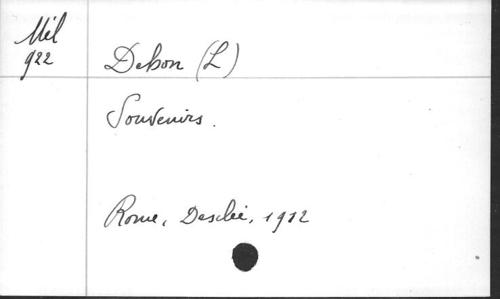 Mél
922
Debon (L)
Souvenirs.
Rome, Desclée, 1912